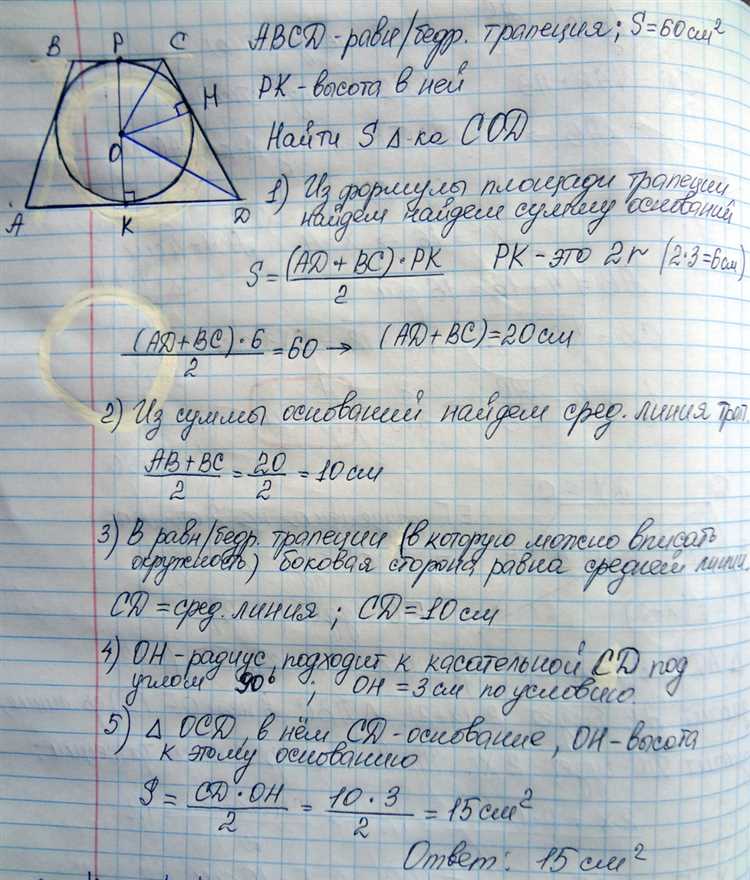 B P C
H
O
A K D
ABCD - равн/бедр. трапеция; S=60см²
PK - высота в ней
Найти S Δ-ка COD
1) Из формулы площади трапеции
найдем найдем сумму оснований
S = (AD+BC)·PK / 2 PK - это 2r (2·3=6см)
(AD+BC)·6 / 2 = 60 → (AD+BC)=20см
2) Из суммы оснований найдем сред. линия трап.
AB+BC / 2 = 20 / 2 = 10см
3) В равн/бедр. трапеции (в которую можно вписать
окружность) боковая сторона равна средней линии.
CD = сред. линия ; CD=10см
4) OH - радиус, подходит к касательной CD под
углом 90° ; OH = 3см по условию.
5) Δ OCD, в нём CD - основание, OH - высота
к этому основанию
S = CD·OH / 2 = 10·3 / 2 = 15см²
Ответ: 15см²